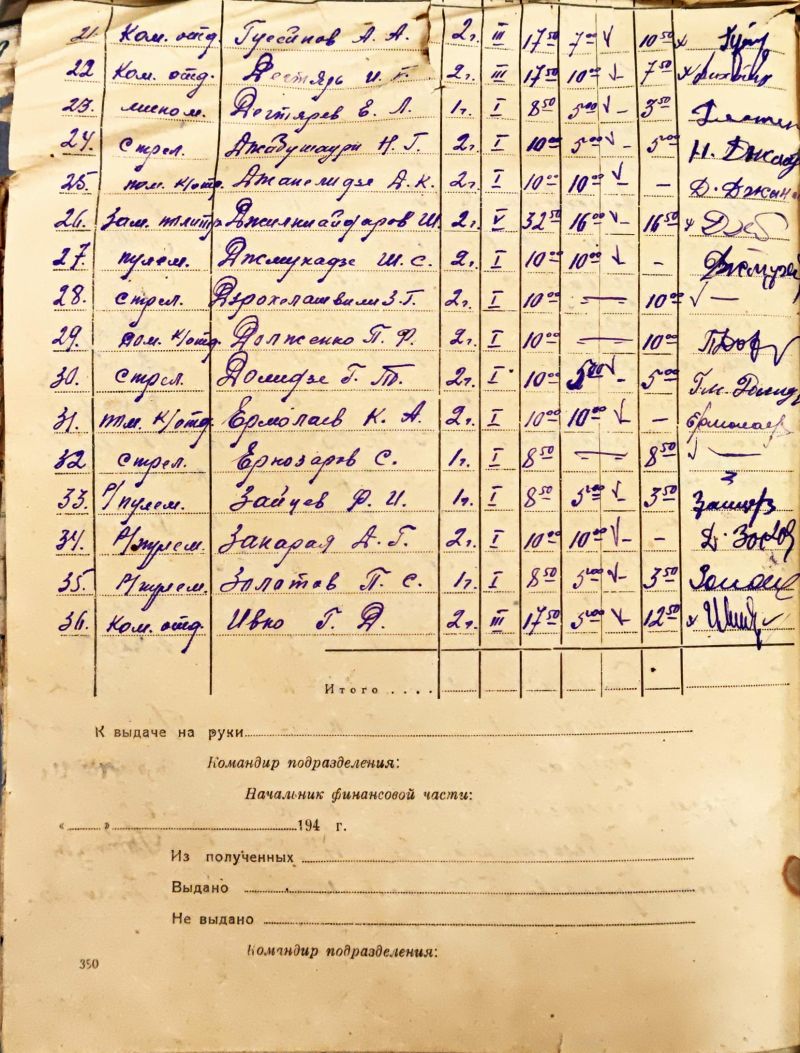 21 Ком. отд. Гусейнов А. А. 2г. III 17 50 7 00 10 50
22 Ком. отд. Дегтярь И. Г. 2г. III 17 50 10 00 7 50
23. Дегтярев Е. Л. 1г. I 8 50 5 00 3 50
24. стрел. Джабушаури Н. Г. 2г. I 10 00 5 00 5 00 Н.
25. пом. к/отд. Джанелидзе А. К. 2г. I 10 00 10 00 – Д. Джан
26. Зам. Ш. 2г. V 32 50 16 00 16 50
27. пулем. Джмухадзе Ш. С. 2г. I 10 00 10 00 – Джмухад
28. стрел. Дзрохолашвили З. Г. 2г. I 10 00 — 10 00 —
29. пом. к/отд. Долженко П. Ф. 2г. I 10 00 — 10 00
30. стрел. Долидзе Г. Т. 2г. I 10 00 5 00 5 00
31. пом. к/отд. Ермолаев К. А. 2г. I 10 00 10 00 – Ермолаев
32 стрел. Ерназаров С. 1г. I 8 50 — 8 50 —
33. Р/пулем. Зайцев Ф. И. 1г. I 8 50 5 00 3 50
34. Р/пулем. Закарая Д. Г. 2г. I 10 00 10 00 – Д.
35. Р/пулем. Золотов П. С. 1г. I 8 50 5 00 3 50
36. Ком. отд. Ивко Г. Д. 2г. III 17 50 5 00 12 50
Итого . . . .
К выдаче на руки
Командир подразделения:
Начальник финансовой части:
« » 194 г.
Из полученных
Выдано
Не выдано
Командир подразделения:
350